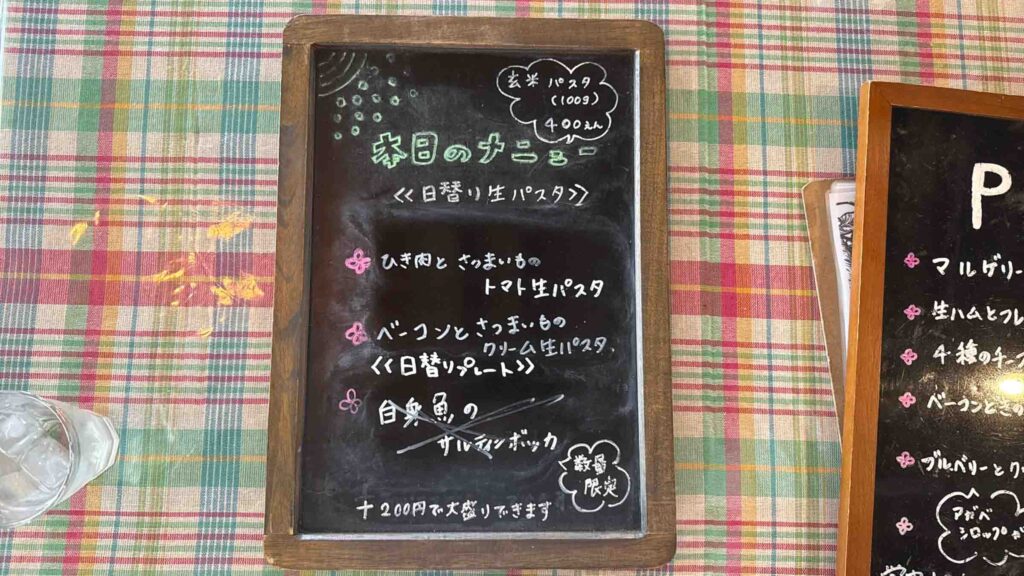 玄米 パスタ
(100g)
400えん
本日のメニュー
<<日替り生パスタ>>
ひき肉と さつまいもの
トマト生パスタ
ベーコンと さつまいもの
クリーム生パスタ
<<日替りプレート>>
白身魚の
サルティンボッカ
数量
限定
+200円で大盛りできます
P
マルゲリー
生ハムとフレ
4種のチーズ
ベーコンときの
ブルベリーとク
アガベ
シロップ